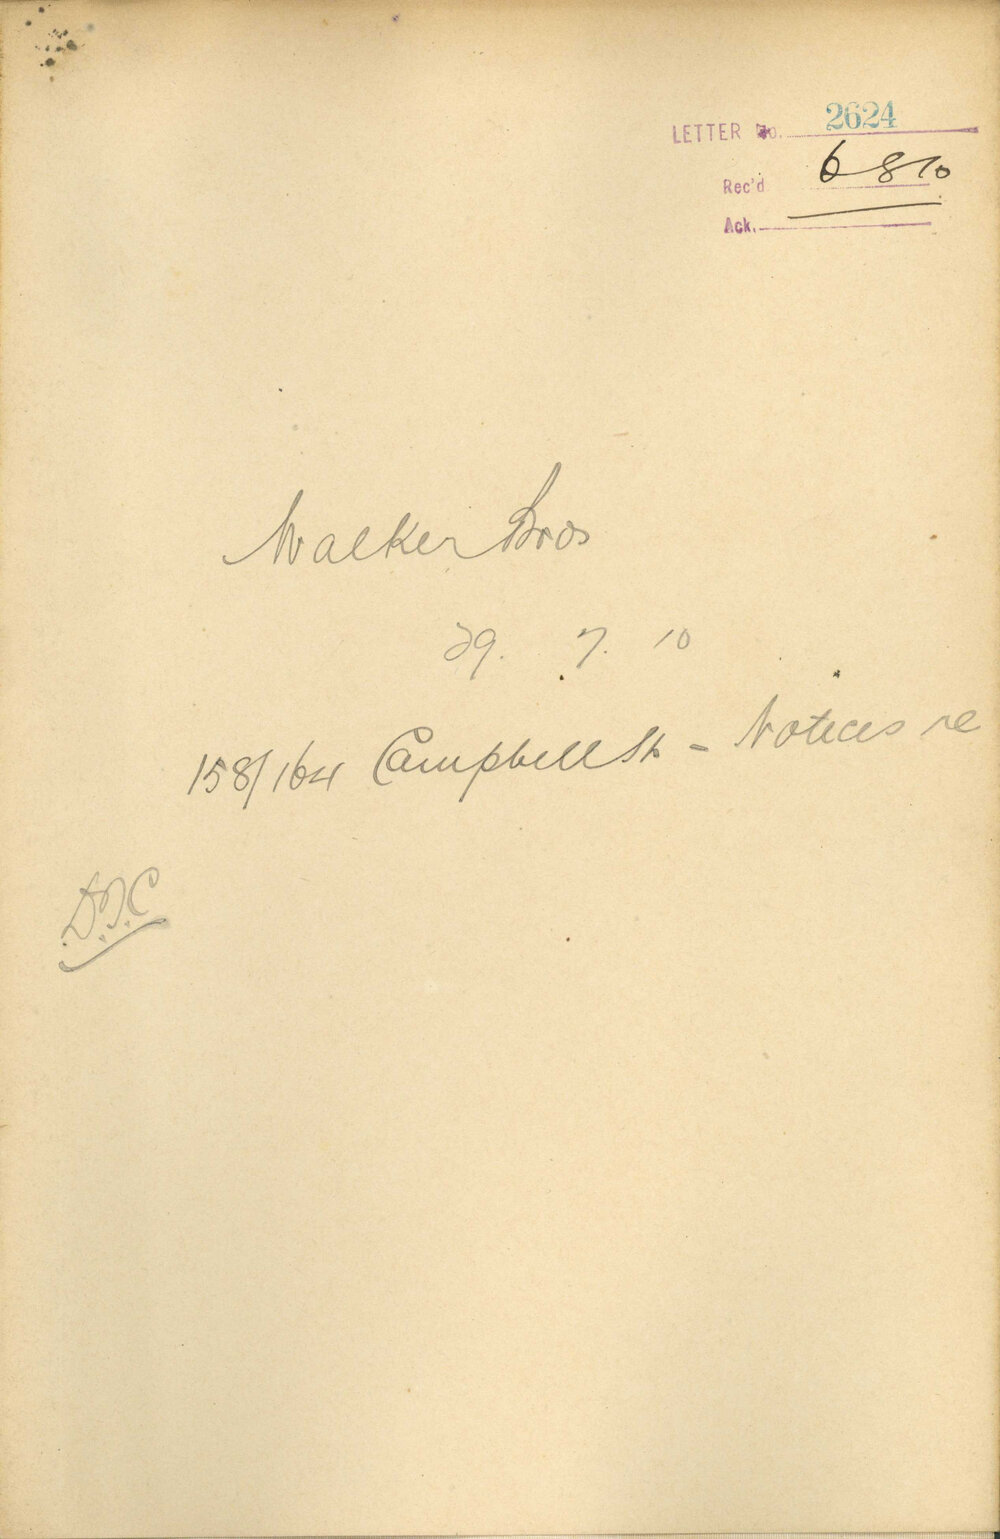 LETTER No. 2624
Rec'd 6 8 10
Ack.
Walker Bros
29. 7. 10
158/164 Campbell St - Notices re